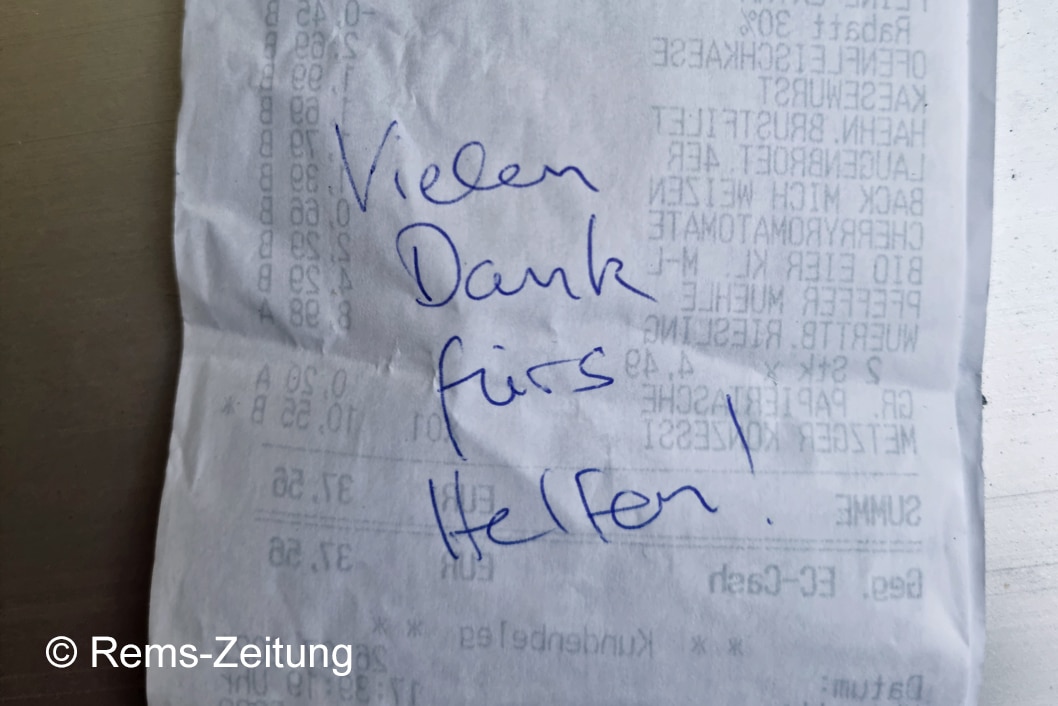 Vielen
Dank
fürs
Helfen!
FEINE
-0,45 B
Rabatt 30%
2,69 B
OFENFLEISCHKAESE
1,99 B
KAESEWURST
1,69 B
HAEHN.BRUSTFILET
,79 B
LAUGENBROET.4ER
1,39 B
BACK MICH WEIZEN
0,66 B
CHERRYROMATOMATE
2,29 B
BIO EIER KL. M-L
4,29 B
PFEFFER MUEHLE
8,98 A
WUERTTB.RIESLING
2 Stk x 4,49
GR. PAPIERTASCHE 0,20 A
METZGER KONZESSI 10,55 B *
SUMME EUR 37,56
Geg. EC-Cash EUR 37,56
* * Kundenbeleg * *
Datum:
17:39:19 Uhr
© Rems-Zeitung